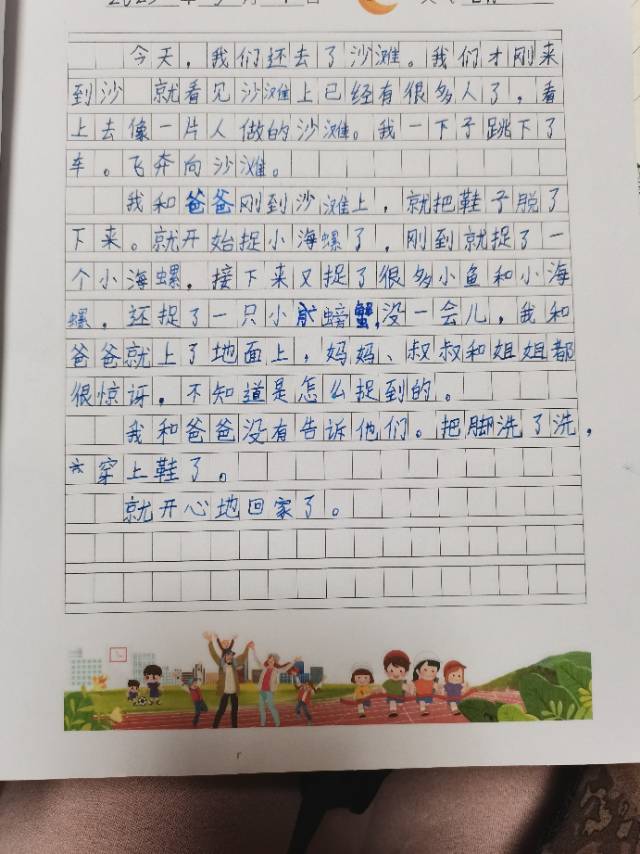 今天，我们还去了沙滩。我们才刚来
到沙 就看见沙滩上已经有很多人了，看
上去像一片人做的沙滩。我一下子跳下了
车。飞奔向沙滩。
我和爸爸刚到沙滩上，就把鞋子脱了
下来。就开始捉小海螺了，刚到就捉了一
个小海螺，接下来又捉了很多小鱼和小海
螺，还捉了一只小螃蟹,没一会儿，我和
爸爸就上了地面上，妈妈、叔叔和姐姐都
很惊讶，不知道是怎么捉到的。
我和爸爸没有告诉他们。把脚洗了洗，
穿上鞋了。
就开心地回家了。